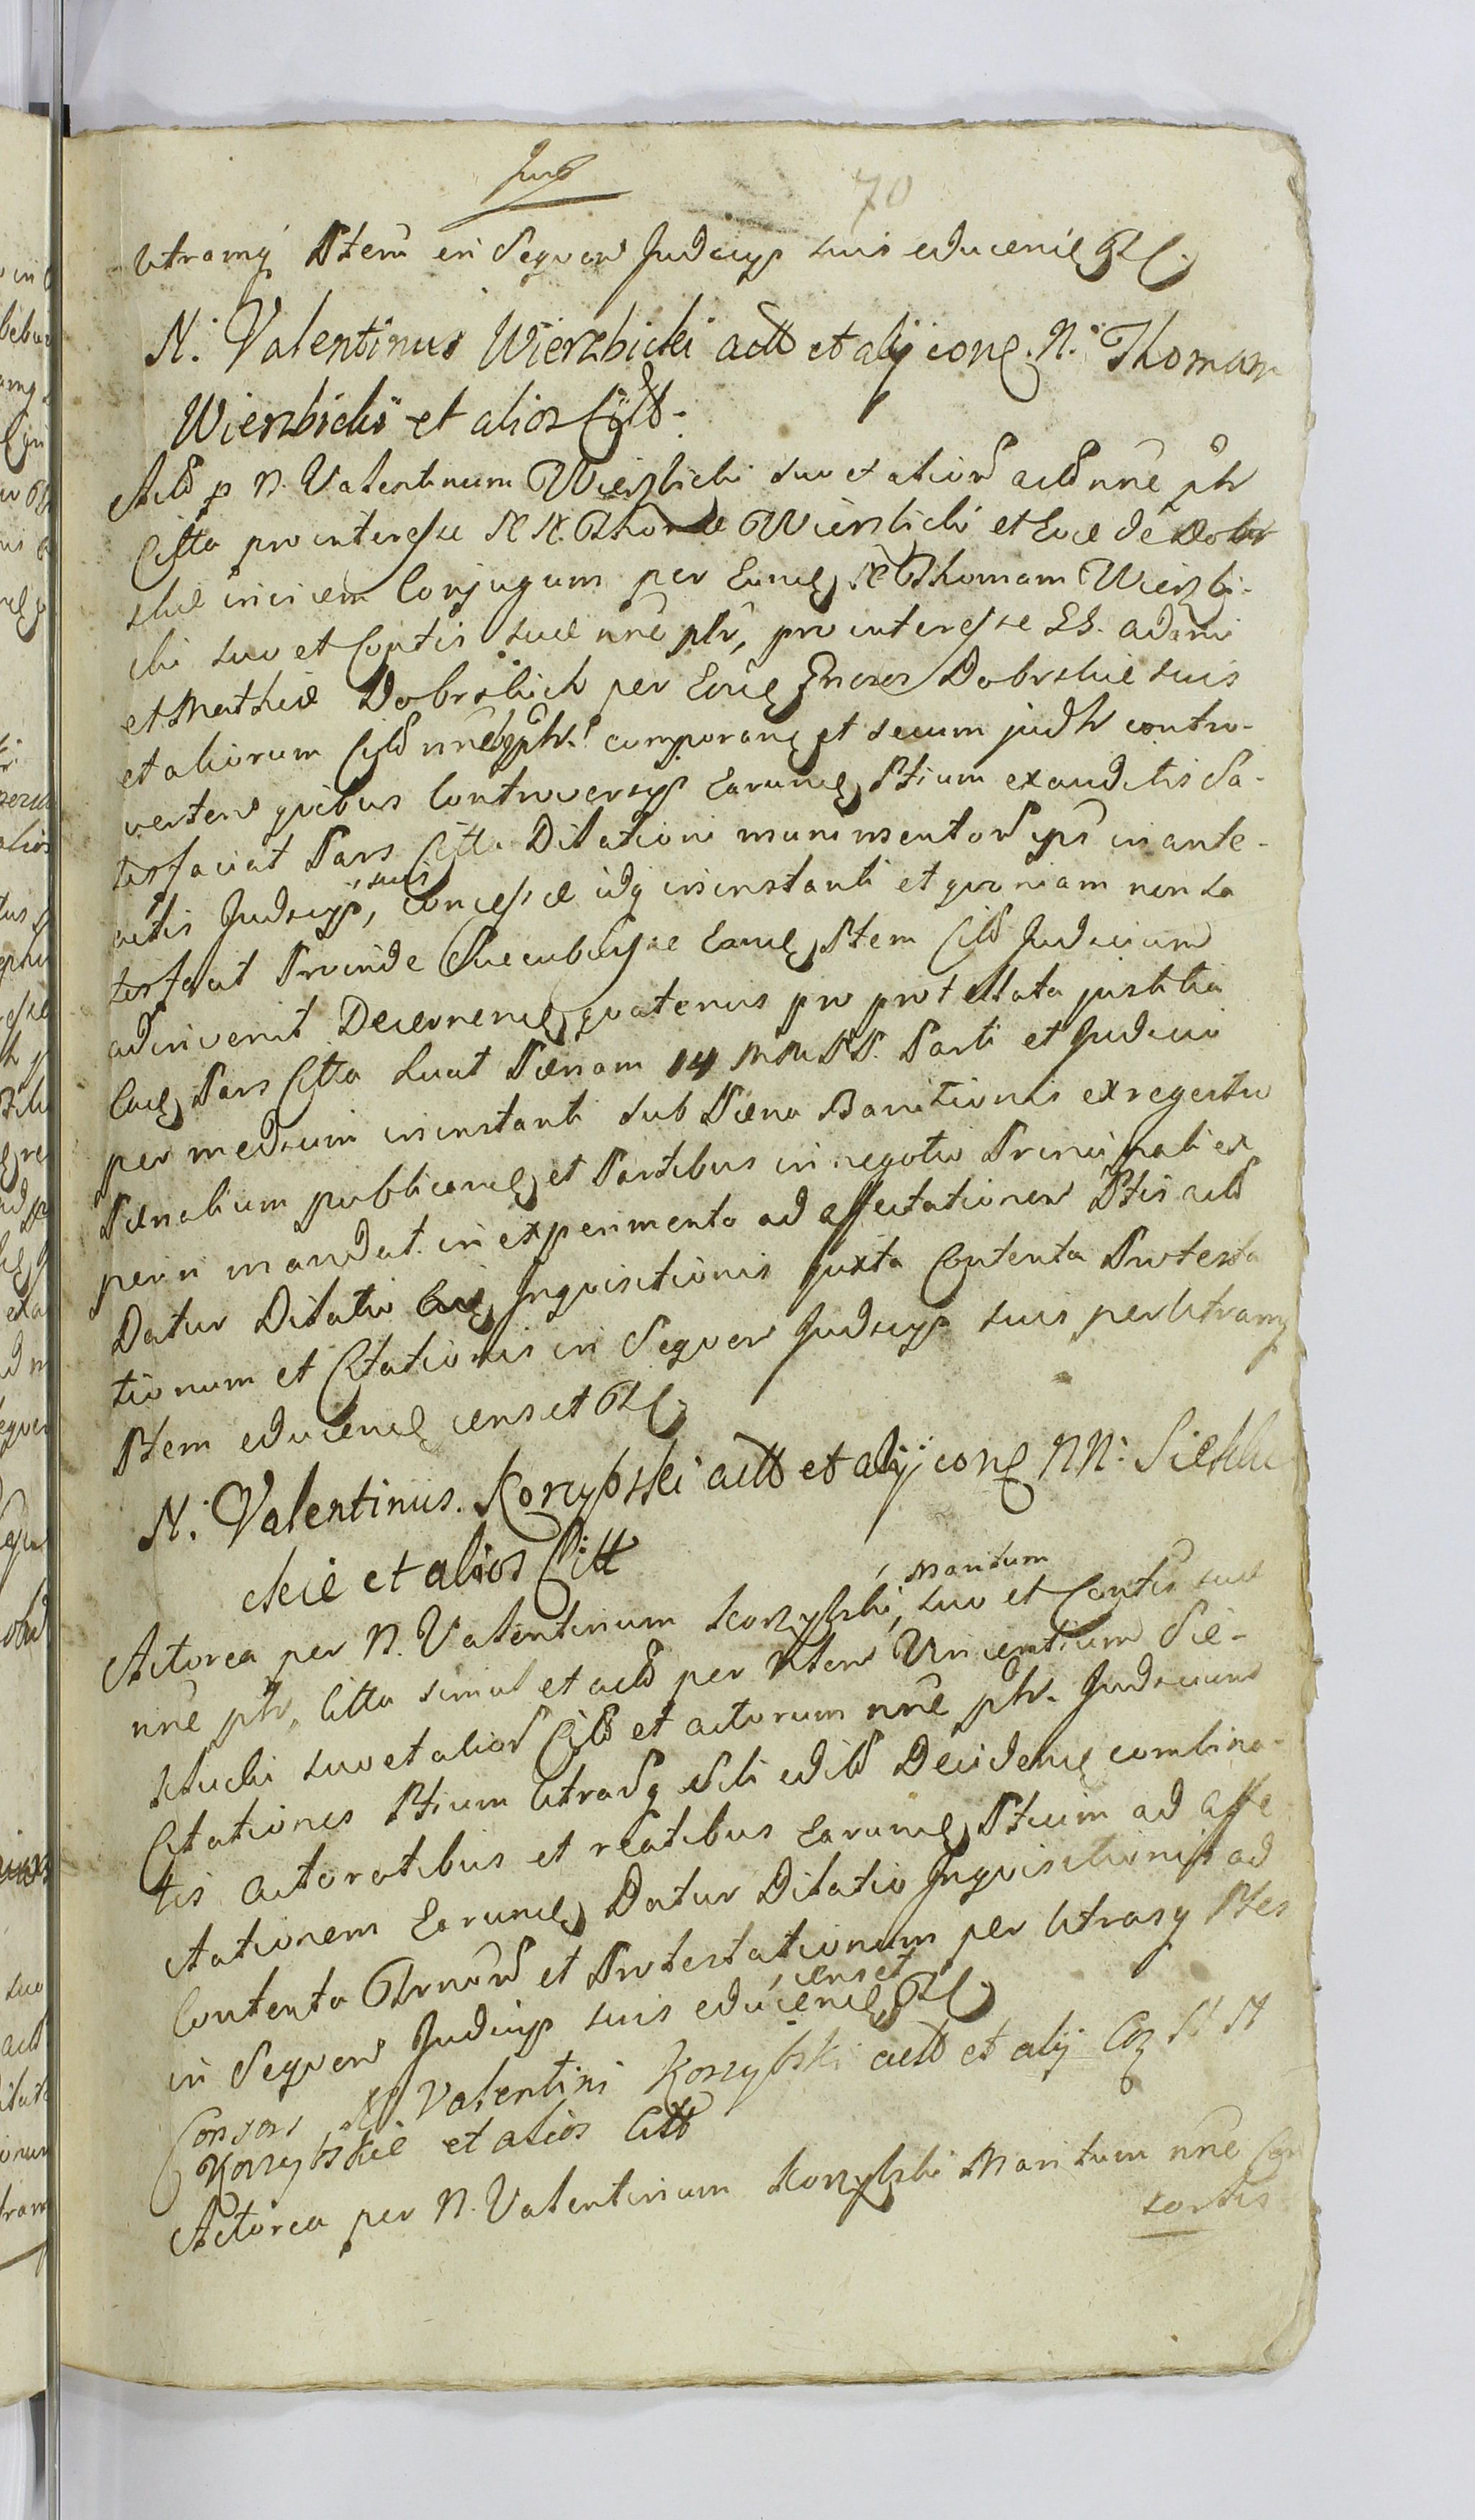 70
utramq Ptem in Sequen Judicijs suis educenę
N. Valentinus Wierzbicki actt et alij conę. N. Thomam
Wierzbicki et alios Citt.
p N. Valentinum Wierzbicki suo et alior nne
Citta pro interesse N N. Thomæ Wierzbicki et Evæ de Dobr
skie invicem Conjugum per Eunę N Thomam Wierzbi-
cki suo et Contis suæ nne pltr, pro interesse GG. Adami
et Mathiæ Dobrskich per Eosę Dobrskie suis
et aliorum comparanę et secum judtr contro-
verten quibus Controversijs Earunę Ptium exauditis Sa-
tisfaciat Pars Citta Dilationi munimentor in ante-
actis Judicijs, suis concessæ idq in instanti et quoniam non sa
tisfecit Proinde Succubuisse Eanę Ptem Judicium
adinvenit Decernenę quatenus pro protestata justitia
Eaę Pars Citta Luat Pænam 14 MM PP. Parti et Judicio
per medium in instanti sub Pæna Banitionis ex regestro
Pænalium publicanę et Partibus in negotio Principali ex
periri mandat. in experimento ad affectationem Ptis
Datur Dilatio Inquisitionis juxta Contenta Protesta
tionum et Citationis in Sequen Judicijs suis per Utramq
Ptem educenę censet
N. Valentinus. Korzybski actt et alij conę NN. Siekluc
ckie et alios Citt
Actorea per N. Valentinum Korzybski, Maritum suo et Contis suæ
nne pltr, Citta simul et per Vincentium Sie-
kłucki suo et alior et actorum nne pltr. Judicium
Citationes Ptium Utrarq Decidenę combina-
tis Actoratibus et reatibus Earunę Ptium ad affe
ctationem Earunę Datur Dilatio Inquisitionis ad
Contenta et Protestationum per Utrasq Ptes
in Sequen Judicijs suis educenę censet
Consors N Valentini Korzybski actt et alij N N
Korzybskie et alios Citt
Actorea per N. Valentinum Korzybski Maritum nne Con
sortis